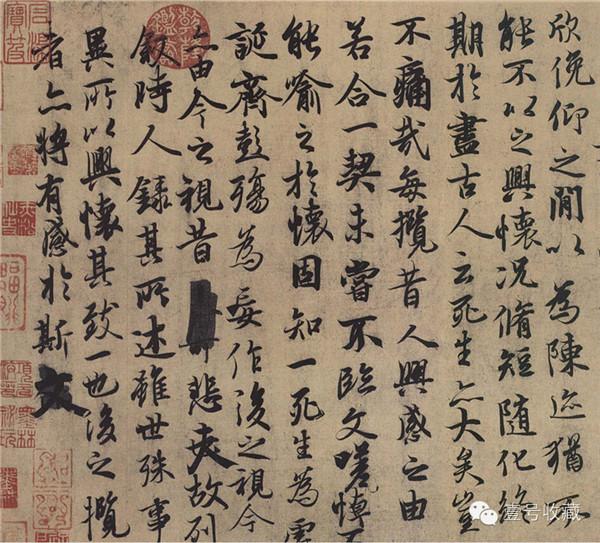 欣俛仰之閒以為陳迹猶不
能不以之興懷況脩短隨化終
期於盡古人云死生亦大矣豈
不痛哉每攬昔人興感之由
若合一契未嘗不臨文嗟悼不
能喻之於懷固知一死生為虛
誕齊彭殤為妄作後之視今
亦由今之視昔悲夫故列
敘時人錄其所述雖世殊事
異所以興懷其致一也後之攬
者亦將有感於斯文
壹号收藏